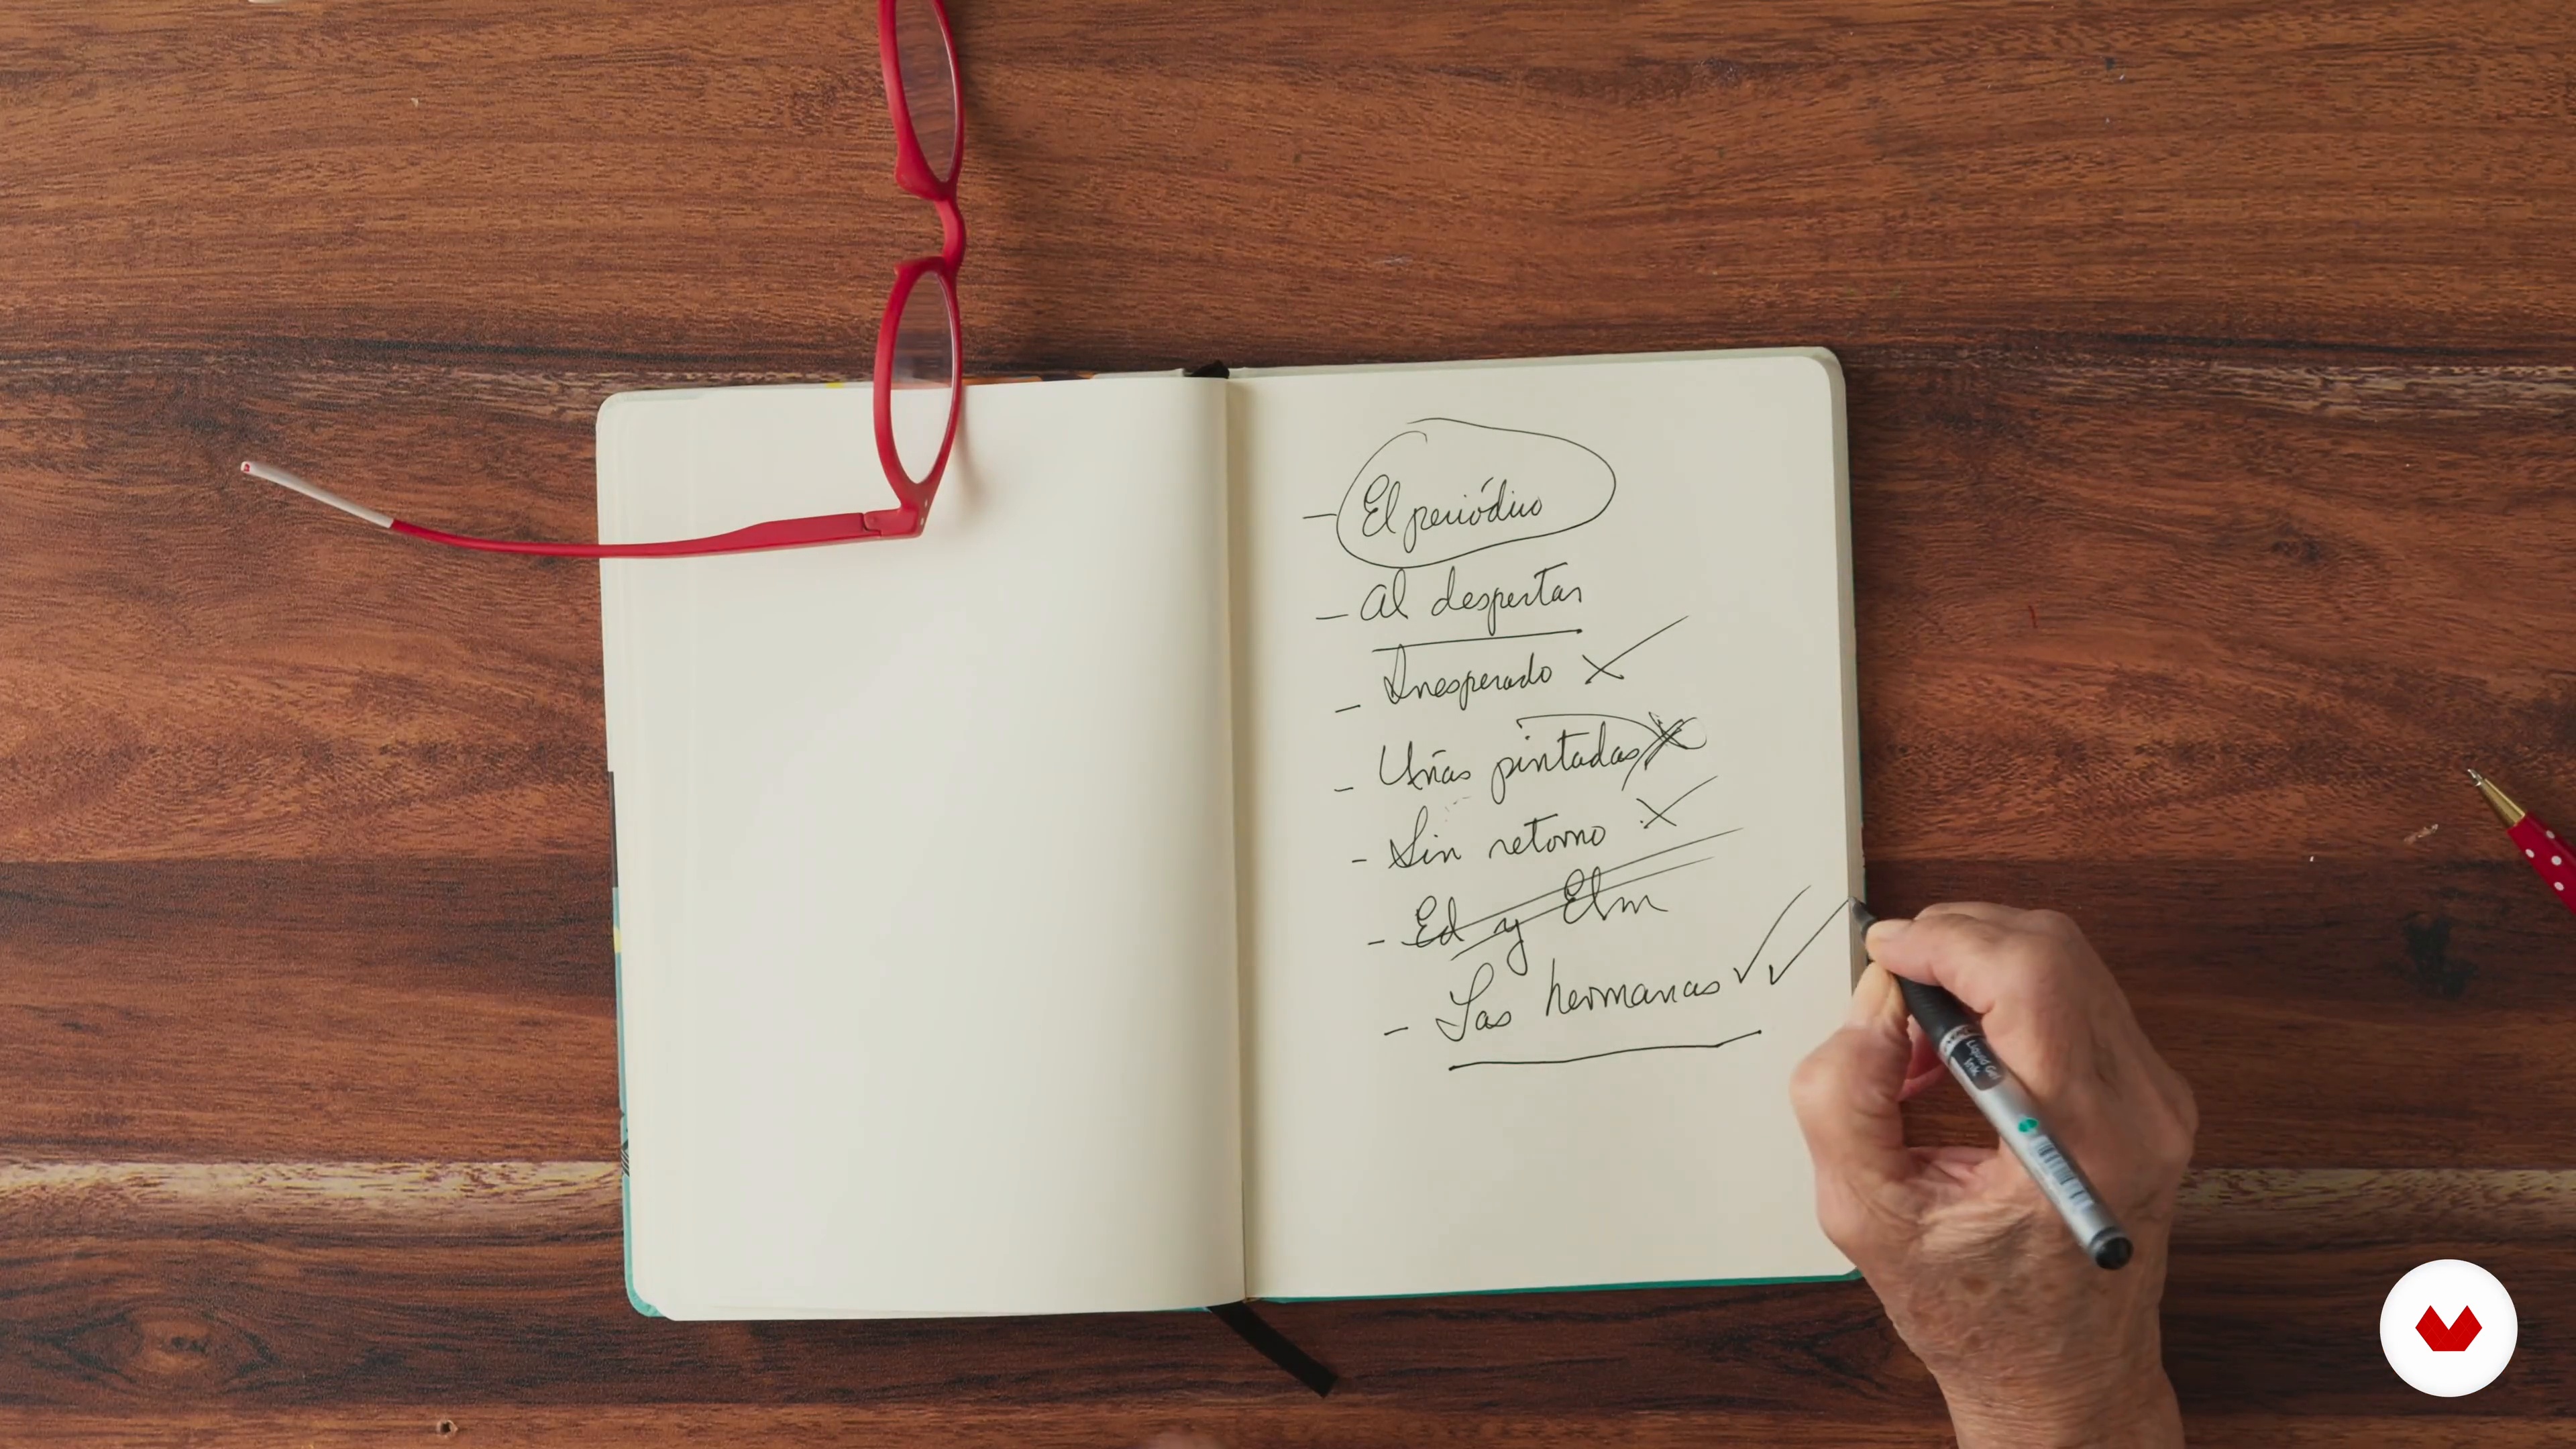 - El periódico
- Al despertar
- Inesperado
- Uñas pintadas
- Sin retorno
- Ed y Elm
- Las hermanas
Liquid Gel
Ink